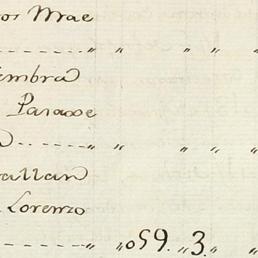 os Mae
...... " " " "
embra
Paraxe
" " " "
allan
Lorenzo
...... " "059. 3. "